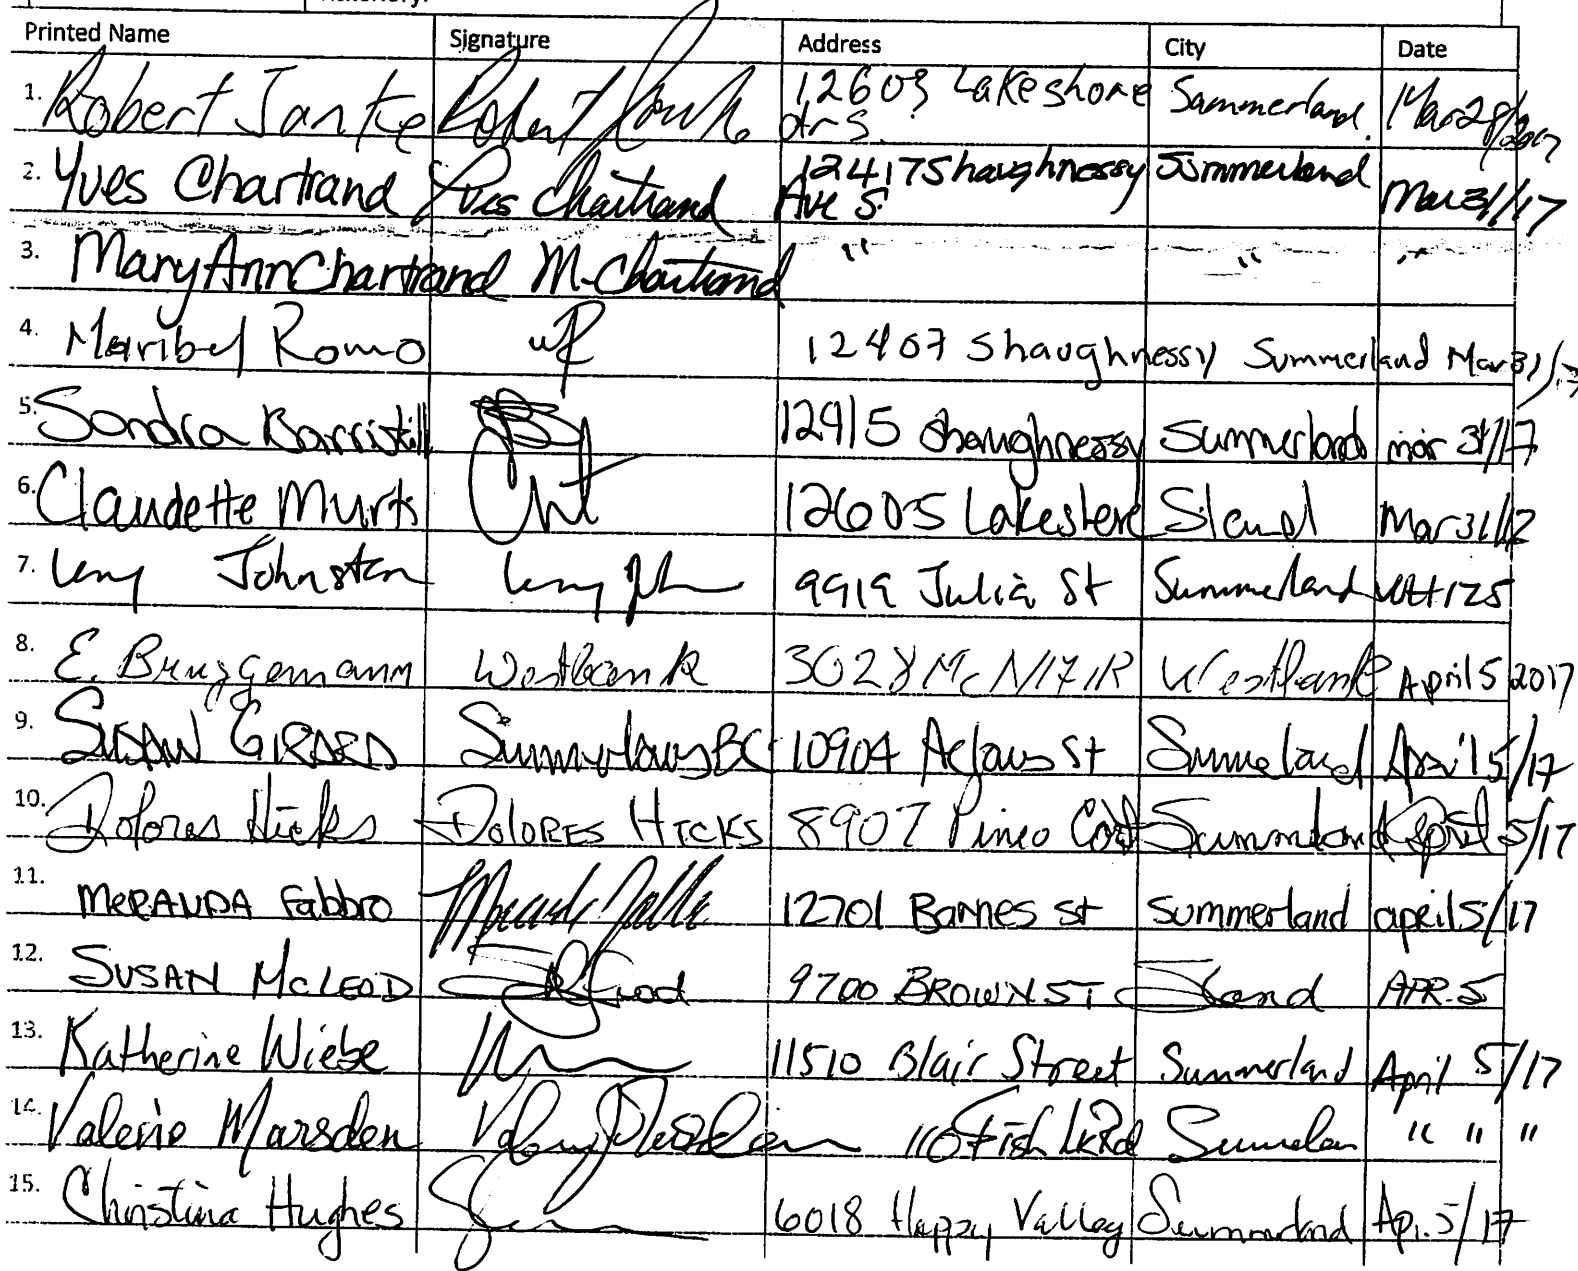 Printed Name Signature Address City Date
1. Robert Jantke Robert 12603 Lakeshore Summerland Mar 28/2017
dr S.
2. Yves Chartrand Yves Chartrand 12417 Shaughnessy Summerland Mar 31/17
Ave S.
3. MaryAnn Chartrand M. Chartrand " " "
4. Maribel Romo 12407 Shaughnessy Summerland Mar 31/17
5. Sandra Barriskill 12915 Shaughnessy Summerland mar 31/17
6. Claudette Murks 12605 Lakeshore S'land Mar 31/17
7. Johnston 9919 Julia St Summerland
8. E. Bruggemann Westbank 3028 McNAIR Westbank April 5 2017
9. SUSAN GIRARD Summerland BC 10904 Adams St Summerland April 5/17
10. Dolores Hicks DOLORES HICKS 8907 Pineo Crt Summerland April 5/17
11. MERANDA Fabbro 12701 Barnes st Summerland april 5/17
12. SUSAN MCLEOD 9700 BROWN ST S'land APR. 5
13. Katherine Wiebe 11510 Blair Street Summerland April 5/17
14. Valerie Marsden Marsden 110 Fish Lk Rd " " "
15. Christina Hughes 6018 Happy Valley Summerland Ap. 5/17